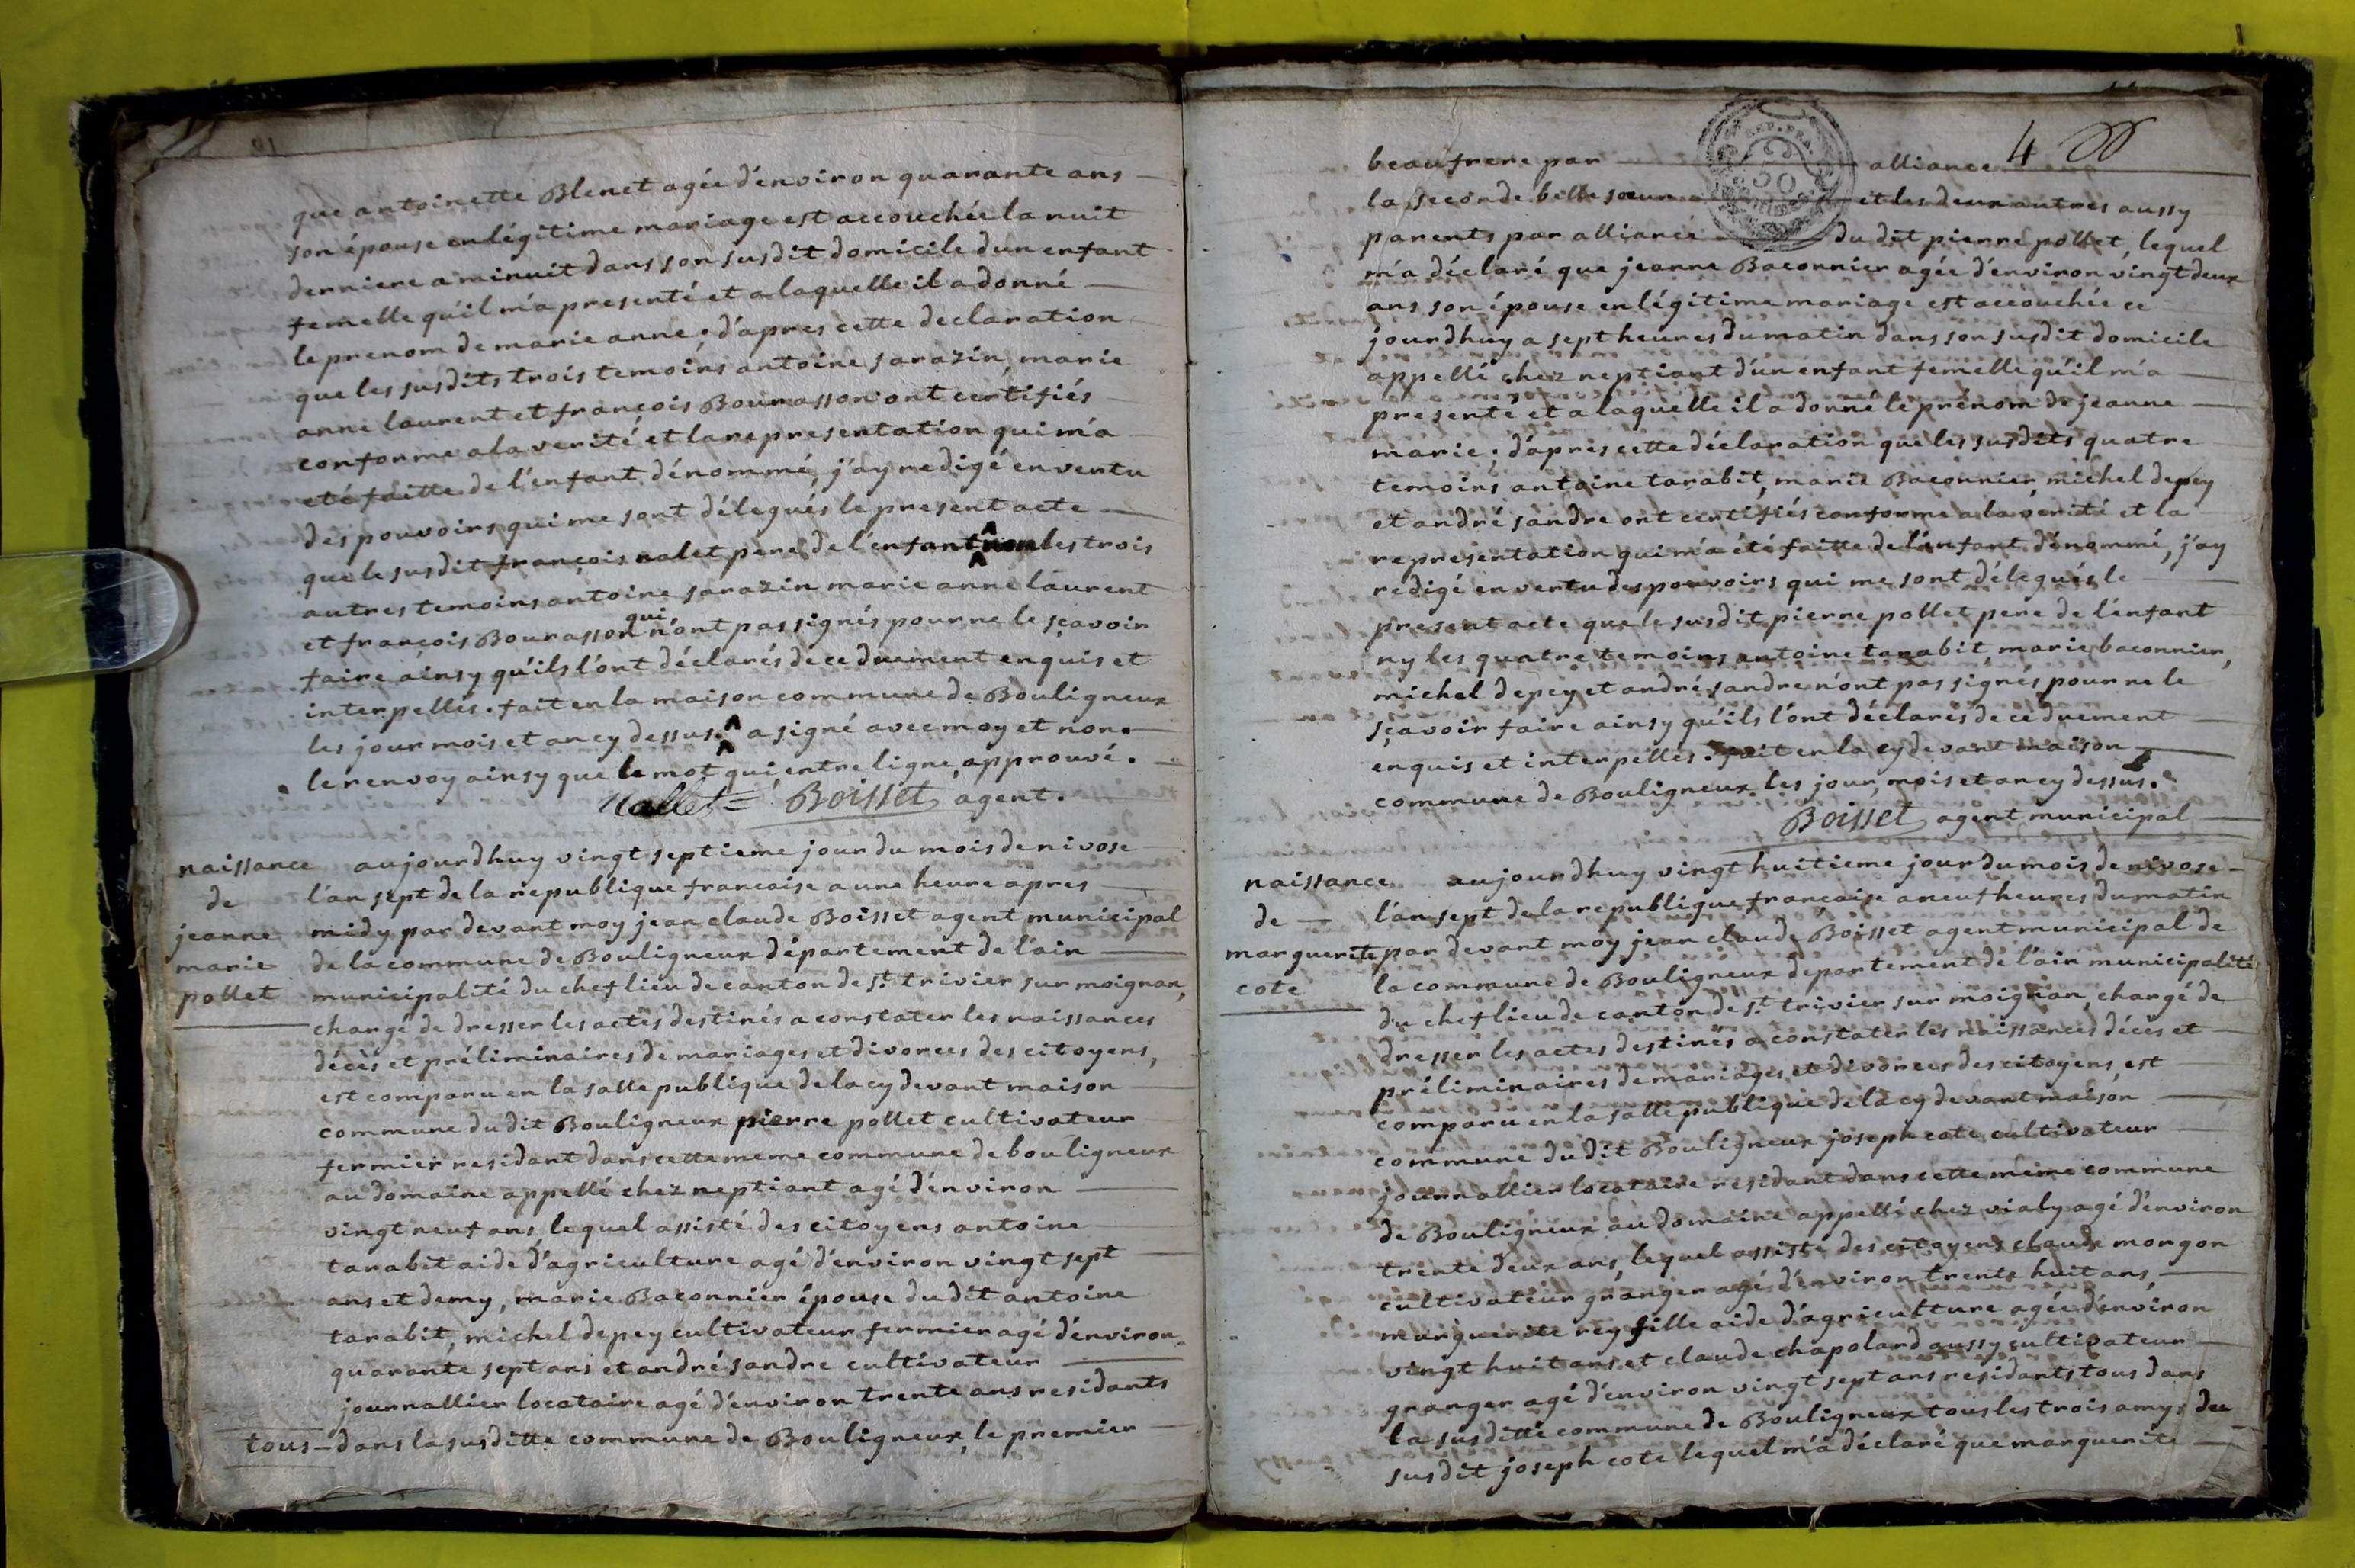 que antoinette Blenet agée d'environ quarante ans
son épouse en légitime mariage est accouchée la nuit
derniere a minuit dans son susdit domicile d'un enfant
femelle qu'il m'a presenté et a laquelle il a donné
le prenom de marie anne; d'apres cette declaration
que les susdits trois temoins antoine sarazin, marie
anne laurent et françois Bourasson ont certifiés
conforme a la verité et la representation qui m'a
eté faitte de l'enfant dénommé, j'ay redigé en vertu
des pouvoirs qui me sont délegués le present acte
que le susdit françois nalet pere de l'enfant les trois
autres temoins antoine sarazin marie anne laurent
et françois Bourasson qui n'ont pas signés pour ne le sçavoir
faire ainsy qu'ils l'ont déclarés de ce duement enquis et
interpellés. fait en la maison commune de Bouligneux
les jour mois et an cy dessus. a signé avec moy et non
le renvoy ainsy que le mot qui entre ligne approuvé.
Nallet = Boisset agent.
naissance
de
jeanne
marie
pollet
aujourdhuy vingt septieme jour du mois de nivose
l'an sept de la republique francaise a une heure apres
midy par devant moy jean claude Boisset agent municipal
de la commune de Bouligneux département de l'ain
municipalité du chef lieu de canton de st. trivier sur moignan,
chargé de dresser les actes destinés a constater les naissances
décès et préliminaires de mariages et divorces des citoyens,
est comparu en la salle publique de la cy devant maison
commune du dit Bouligneux pierre pollet cultivateur
fermier residant dans cette meme commune de bouligneux
au domaine appellé chez neptiant agé d'environ
vingt neuf ans, lequel assisté des citoyens antoine
tarabit aide d'agriculture agé d'environ vingt sept
ans et demy, marie Baconnier épouse du dit antoine
tarabit, michel depey cultivateur fermier agé d'environ
quarante sept ans et andré sandre cultivateur
journallier locataire agé d'environ trente ans residants
tous - dans la susditte commune de Bouligneux, le premier
4
beaufrere par alliance
la seconde belle sœur et les deux autres aussy
parents par alliance du dit pierre pollet, lequel
m'a déclaré que jeanne Baconnier agée d'environ vingt deux
ans son épouse en légitime mariage est accouchée ce
jourdhuy a sept heures du matin dans son susdit domicile
appellé chez neptiant d'un enfant femelle qu'il m'a
presenté et a laquelle il a donné le prénom de jeanne
marie; d'apres cette déclaration que les susdits quatre
temoins antoine tarabit, marie Baconnier, michel depey
et andré sandre ont certifiés conforme a la verité et la
representation qui m'a été faitte de l'enfant dénommé, j'ay
redigé en vertu des pouvoirs qui me sont délegués le
present acte que le susdit pierre pollet pere de l'enfant
ny les quatre temoins antoine tarabit, marie baconnier,
michel depey et andré sandre n'ont pas signés pour ne le
sçavoir faire ainsy qu'ils l'ont déclarés de ce duement
enquis et interpellés. fait en la cy devant maison
commune de Bouligneux les jour, mois et an cy dessus.
Boisset agent municipal
naissance
de
marguerite
cote
aujourdhuy vingt huitieme jour du mois de nivose
l'an sept de la republique francaise a neuf heures du matin
par devant moy jean claude Boisset agent municipal de
la commune de Bouligneux departement de l'ain municipalité
du chef lieu de canton de st. trivier sur moignan, chargé de
dresser les actes destinés a constater les naissances décès et
préliminaires de mariages et divorces des citoyens, est
comparu en la salle publique de la cy devant maison
commune du dit Bouligneux joseph cote cultivateur
journallier locataire residant dans cette même commune
de Bouligneux au domaine appellé chez vialy agé d'environ
trente deux ans, lequel assisté des citoyens claude morgon
cultivateur granger agé d'environ trente huit ans,
marguerite rey fille aide d'agriculture agée d'environ
vingt huit ans et claude chapolard aussy cultivateur
granger agé d'environ vingt sept ans residants tous dans
la susditte commune de Bouligneux tous les trois amys du
susdit joseph cote lequel m'a déclaré que marguerite